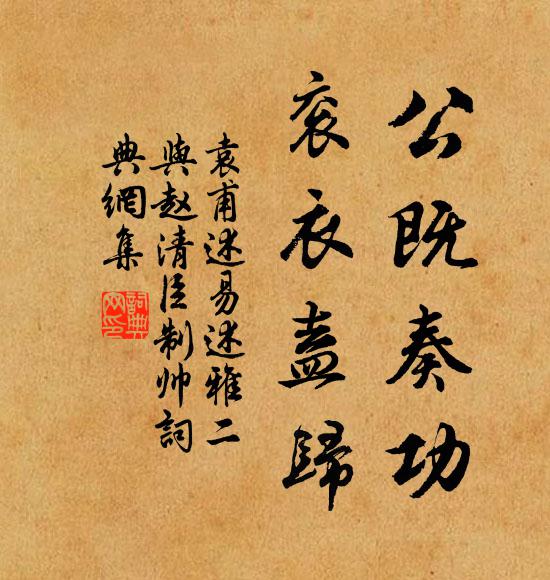 公既奏功
衮衣盍歸
袁甫述易述雅二
與赵清臣制帅詞
典網集
詞典网印